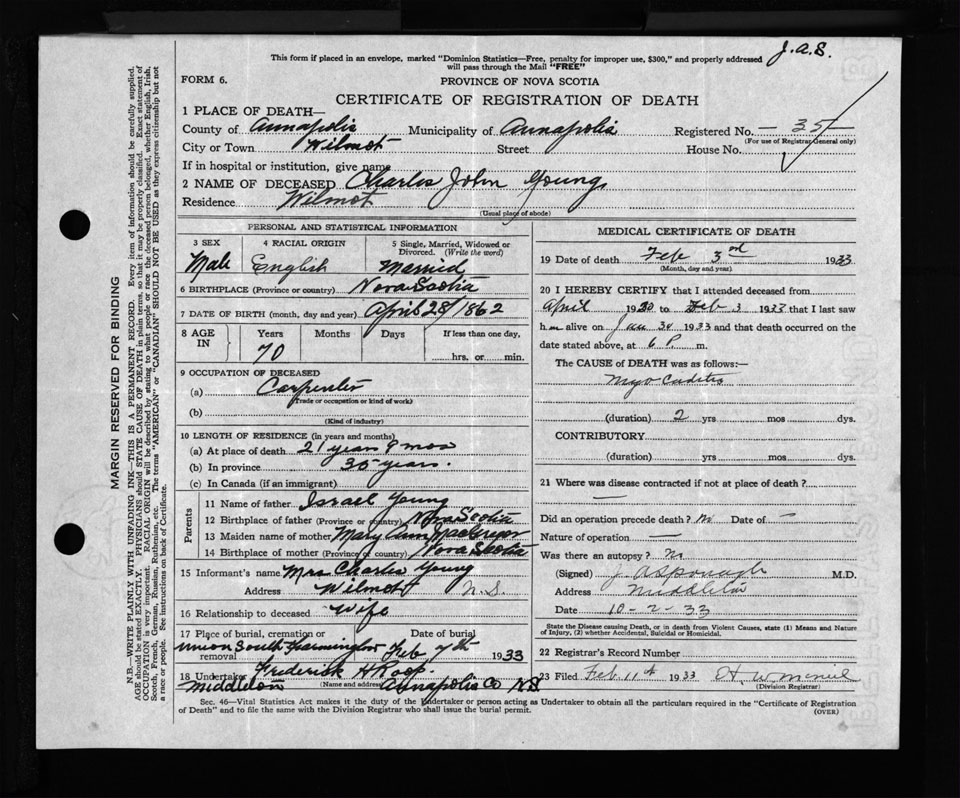 J.A.S.
This form if placed in an envelope, marked "Dominion Statistics—Free, penalty for improper use, $300," and properly addressed
will pass through the Mail "FREE"
FORM 6.
PROVINCE OF NOVA SCOTIA
CERTIFICATE OF REGISTRATION OF DEATH
1 PLACE OF DEATH—
County of Annapolis Municipality of Annapolis Registered No. — 35 —
(For use of Registrar General only)
City or Town Wilmot Street House No.
If in hospital or institution, give name
2 NAME OF DECEASED Charles John Young
Residence Wilmot
(Usual place of abode)
PERSONAL AND STATISTICAL INFORMATION
3 SEX 4 RACIAL ORIGIN 5 Single, Married, Widowed or
Divorced. (Write the word)
Male English Married
6 BIRTHPLACE (Province or country) Nova Scotia
7 DATE OF BIRTH (month, day and year) April 28/1862
8 AGE IN Years Months Days If less than one day,
70 hrs. or min.
9 OCCUPATION OF DECEASED
(a) Carpenter
(Trade or occupation or kind of work)
(b)
(Kind of industry)
10 LENGTH OF RESIDENCE (in years and months)
(a) At place of death 21 years 9 mos
(b) In province 35 years.
(c) In Canada (if an immigrant)
Parents
11 Name of father Israel Young
12 Birthplace of father (Province or country) Nova Scotia
13 Maiden name of mother Mary Ann MacGregor
14 Birthplace of mother (Province or country) Nova Scotia
15 Informant's name Mrs Charles Young
Address Wilmot N.S.
16 Relationship to deceased Wife
17 Place of burial, cremation or Date of burial
removal Union South Farmington Feb 7th 1933
18 Undertaker Frederick H Roop
(Name and address)
Middleton Annapolis Co N.S
MEDICAL CERTIFICATE OF DEATH
19 Date of death Feb 3rd 1933
(Month, day and year)
20 I HEREBY CERTIFY that I attended deceased from
April 1930 to Feb 3 1933 that I last saw
him alive on Jan 30 1933 and that death occurred on the
date stated above, at 6 P. m.
The CAUSE of DEATH was as follows:—
(duration) 2 yrs mos dys.
CONTRIBUTORY
(duration) yrs mos dys.
21 Where was disease contracted if not at place of death?
—
Did an operation precede death? No Date of —
Nature of operation —
Was there an autopsy? No
(Signed) M.D.
Address Middleton
Date 10-2-33
State the Disease Causing Death, or in death from Violent Causes, state (1) Means and Nature
of Injury, (2) whether Accidental, Suicidal or Homicidal.
22 Registrar's Record Number
23 Filed Feb 11th 1933
(Division Registrar)
Sec. 46—Vital Statistics Act makes it the duty of the Undertaker or person acting as Undertaker to obtain all the particulars required in the "Certificate of Registration
of Death" and to file the same with the Division Registrar who shall issue the burial permit. (OVER)
MARGIN RESERVED FOR BINDING
N.B.—WRITE PLAINLY WITH UNFADING INK—THIS IS A PERMANENT RECORD. Every item of information should be carefully supplied.
AGE should be stated EXACTLY. PHYSICIANS should STATE CAUSE OF DEATH in plain terms, so that it may be properly classified. Exact statement of
OCCUPATION is very important. RACIAL ORIGIN will be described by stating to what people or race the deceased person belonged, whether English, Irish,
Scotch, French, German, Russian, Ruthenian, etc. The terms "AMERICAN" or "CANADIAN" SHOULD NOT BE USED as they express citizenship but not
a race or people. See instructions on back of Certificate.